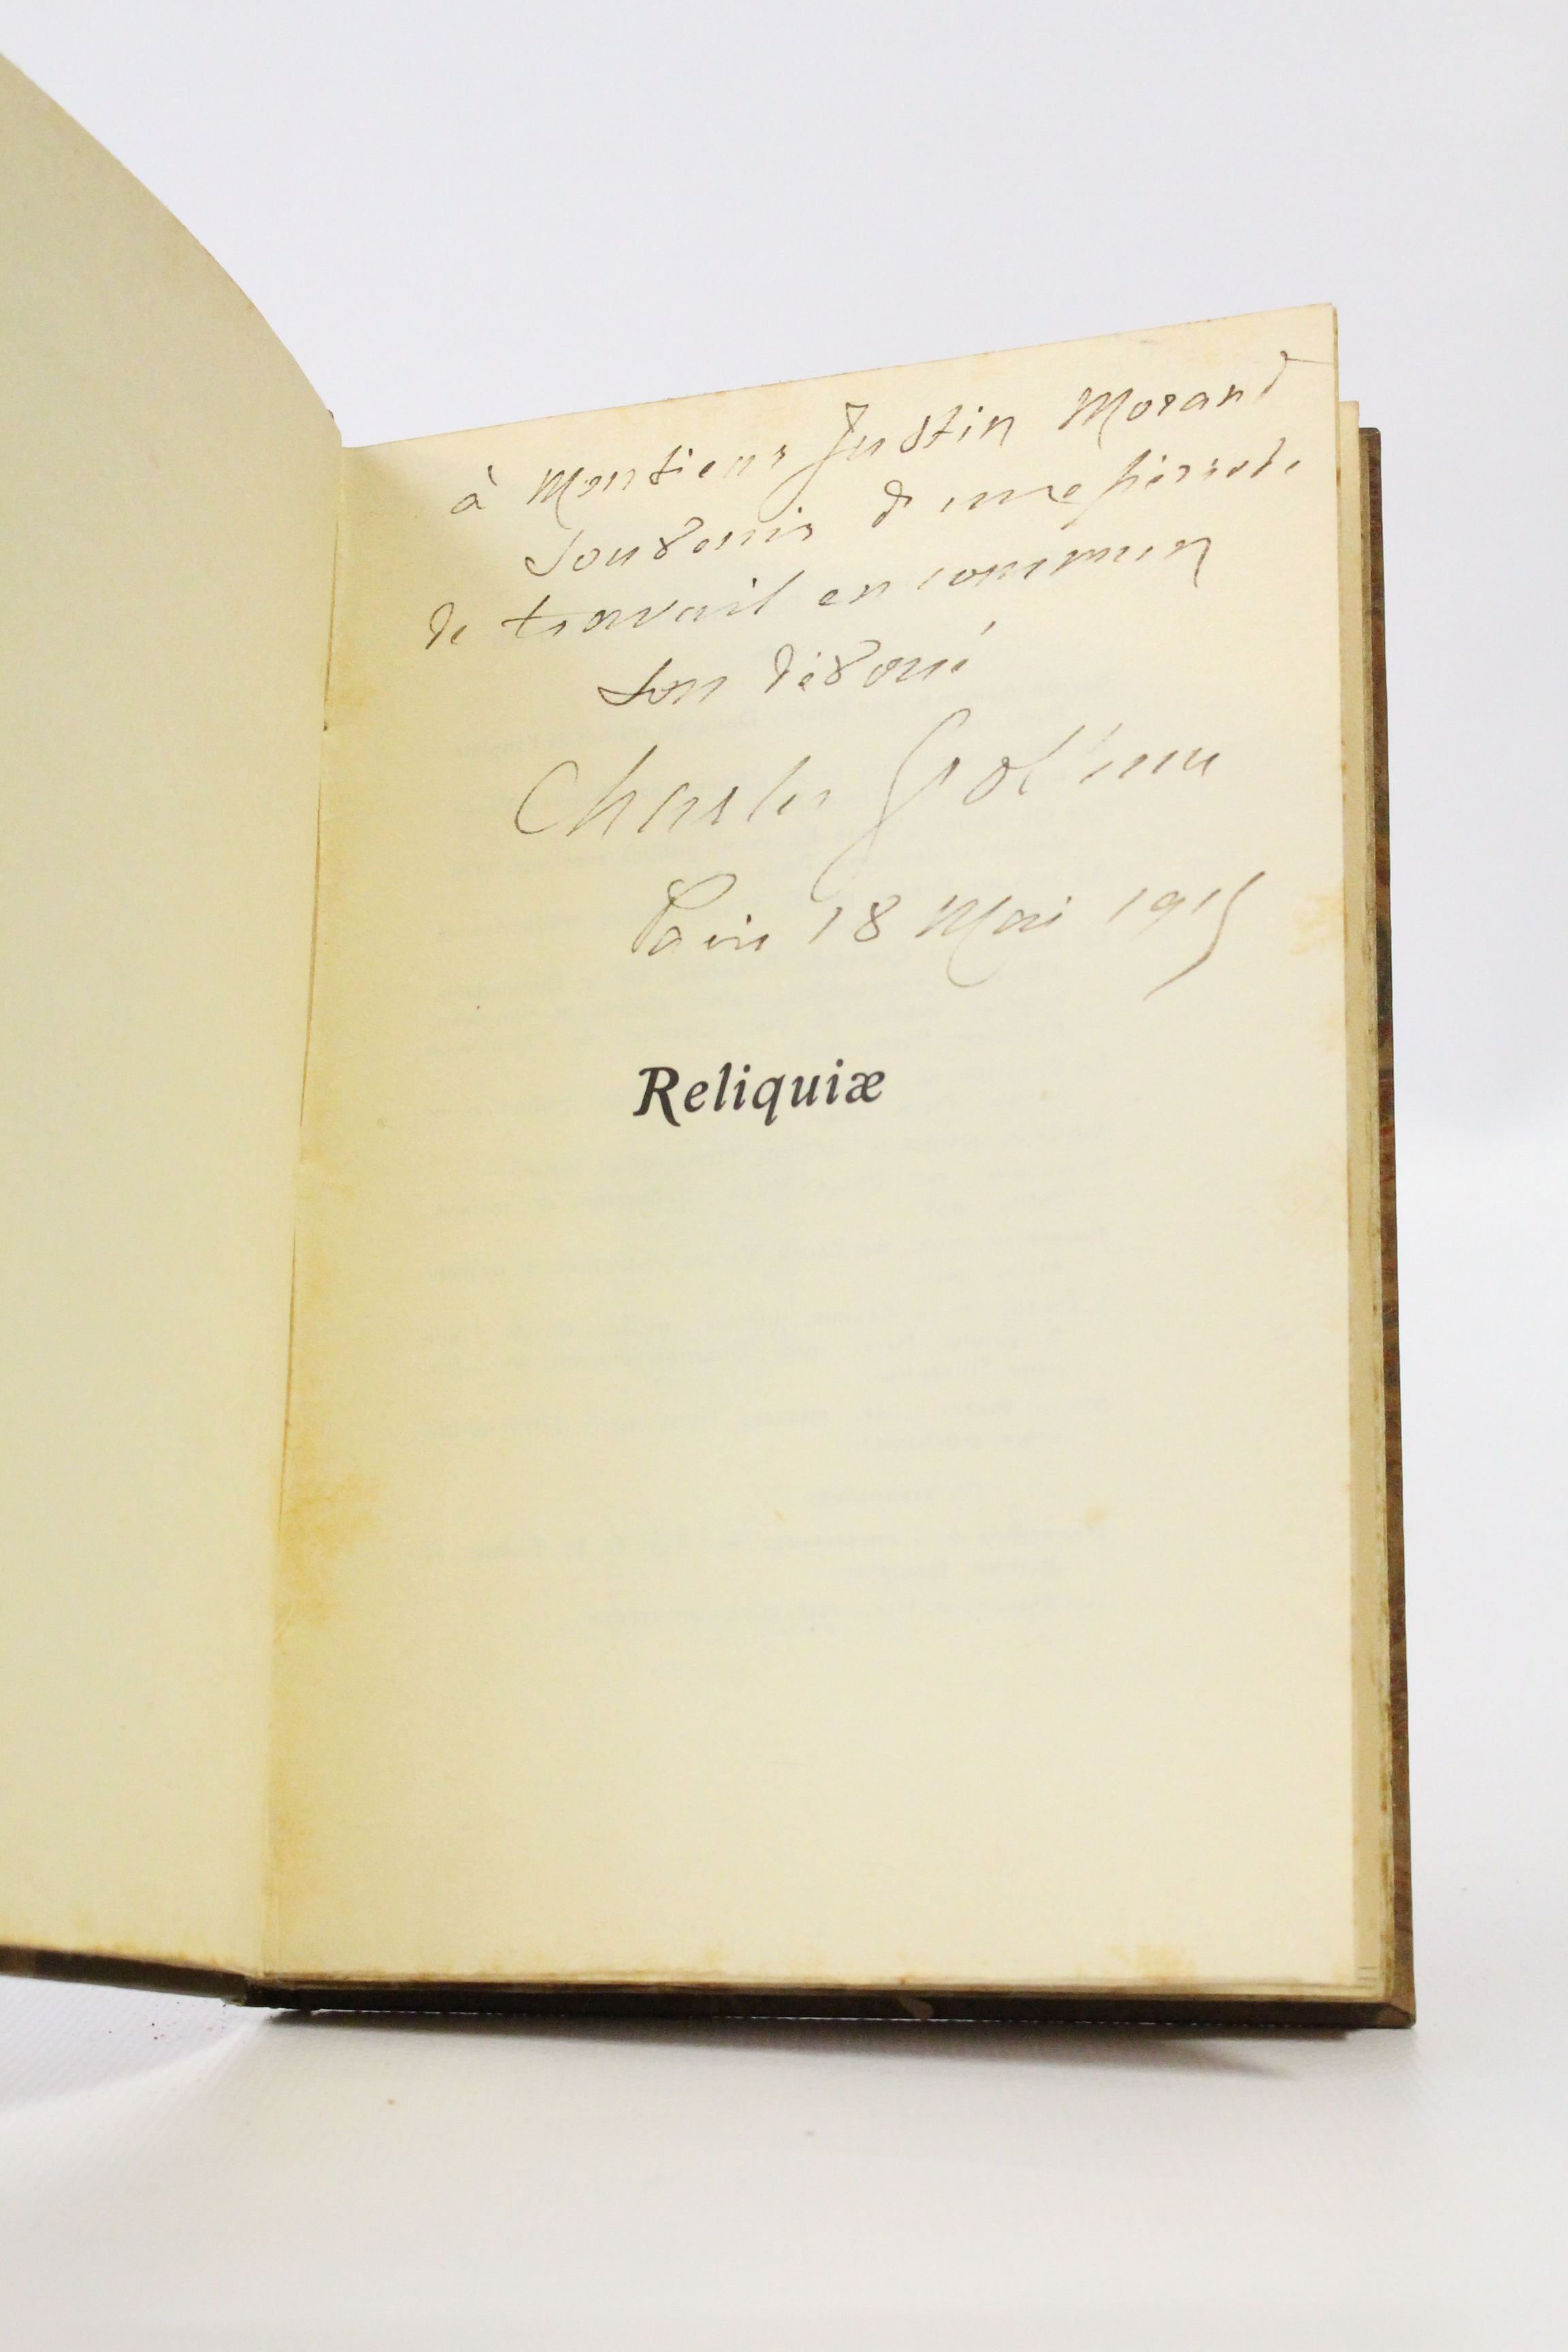 à Monsieur Justin Morand
Souvenir de une période
de travail en commun
Son dévoué
Charles Grolleau
Paris 18 Mai 1915
Reliquiæ